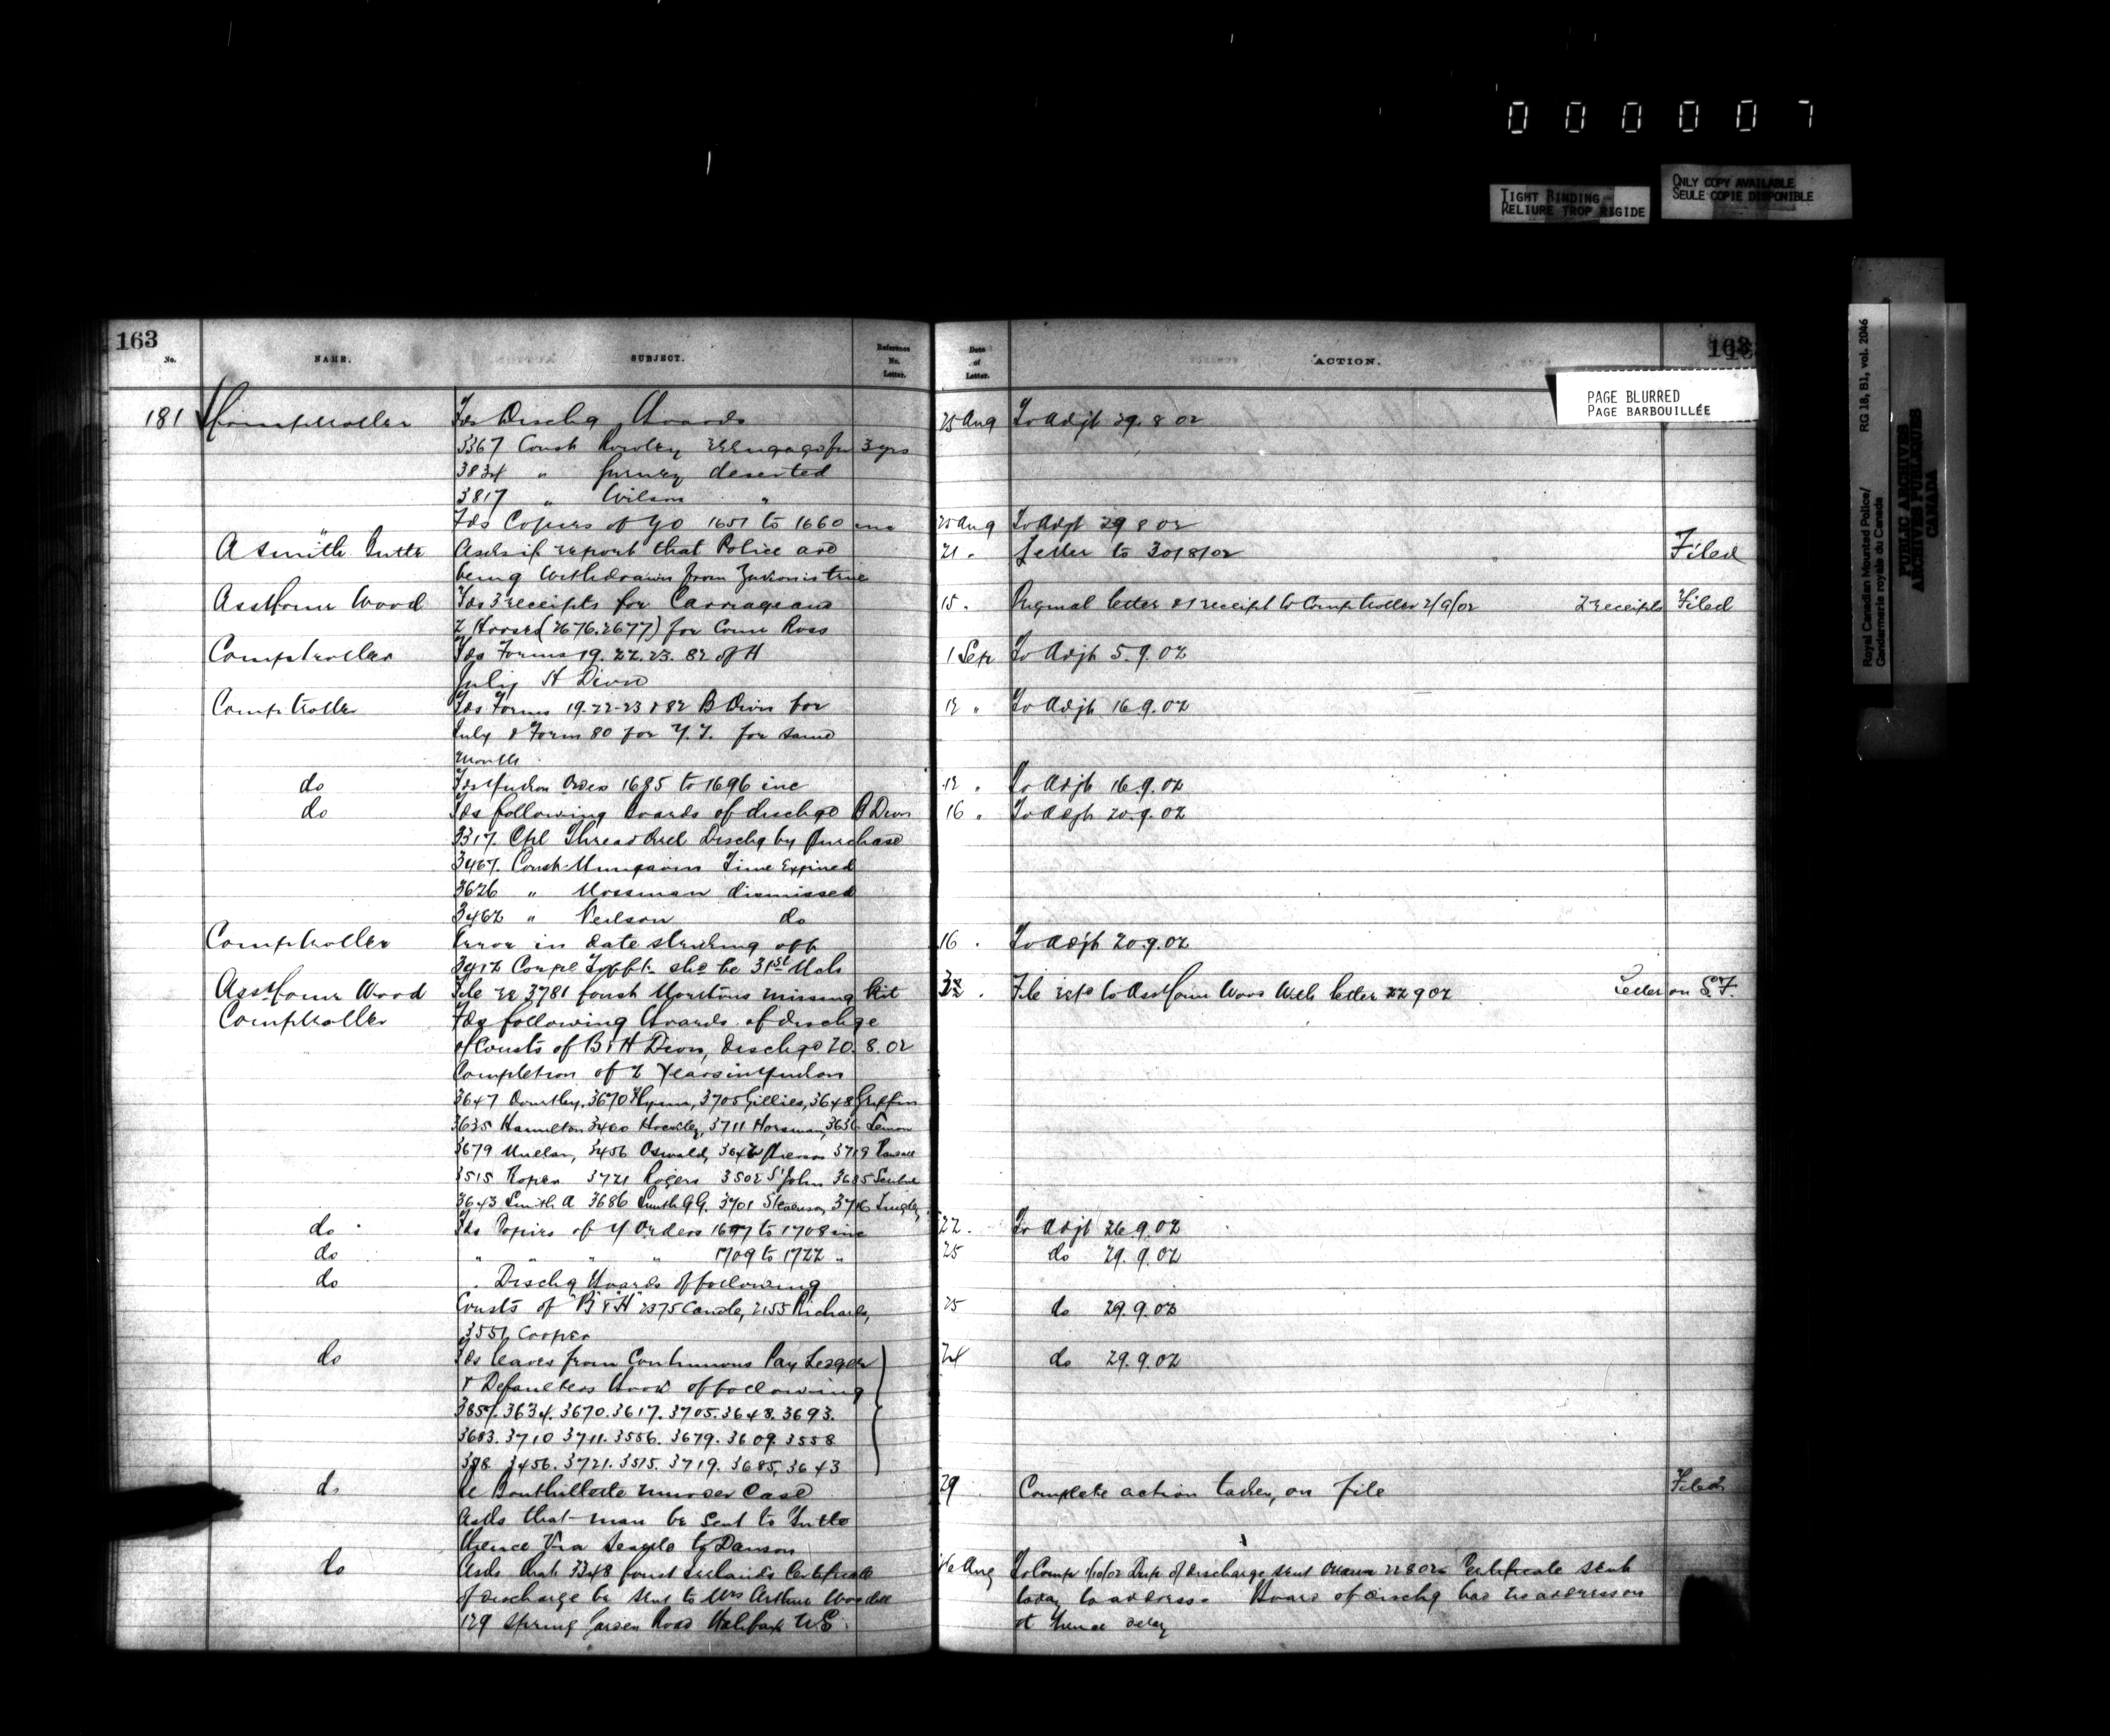 0 0 0 0 0 7
TIGHT BINDING
RELIURE TROP RIGIDE
ONLY COPY AVAILABLE
SEULE COPIE DISPONIBLE
Royal Canadian Mounted Police/ RG 18, B1, vol. 2046
Gendarmerie royale du Canada
PUBLIC ARCHIVES
ARCHIVES PUBLIQUES
CANADA
PAGE BLURRED
PAGE BARBOUILLÉE
163 163
No. NAME. SUBJECT. Reference No. Letter. Date of Letter. ACTION.
181 Comptroller Fds Dischg Boards 25 Aug To Adjt 29.8.02
3367 Const Rowley reengage for 3 yrs
3834 " Gurney deserted
3817 " Wilson "
" Fds Copies of YO 1651 to 1660 inc 25 Aug To Adjt 29 8 02
A Smith Butte Asks if report that Police are 21 . Letter to 30/8/02 Filed
being withdrawn from is true
Ass Comr Wood Fds 3 receipts for Carriage and 15 . Original letter & 1 receipt to Comptroller 2/9/02 2 receipts Filed
2 Horses (2676.2677) for Comr Ross
Comptroller Fds Forms 19.22.23.82 of H 1 Sep To Adjt 5.9.02
July H Divn
Comptroller Fds Forms 19-22-23 & 82 B Divn for 12 " To Adjt 16.9.02
July & Form 80 for Y.T. for same
month
do Fds Yukon Orders 1685 to 1696 inc 12 . To Adjt 16.9.02
do Fds following Boards of dischge B Divn 16 . To Adjt 20.9.02
3317. Cpl Dischg by purchase
3467. Const Time Expired
3626 " Mossman dismissed
3462 " Neilson do
Comptroller Error in date striking off 16 . To Adjt 20.9.02
shd be 31st Mch
Ass Comr Wood File re 3781 Const missing Kit . File retd to Ass Comr Wood with letter 22 9 02 Letter on S.F.
Comptroller Fds following Boards of dischge
of Consts of B & H Divn, dischge 20.8.02
Completion of 2 Years in Yukon
3647 3670 Flynn, 3705 Gillies, 3648 Griffin
3635 Hamilton 3460 3711 Horsman, 3636 Lemon
3679 3456 Oswald, 3719
3515 Roper 3721 Rogers 3502 St John 3685
3643 Smith A 3686 Smith GG. 3701 Stevenson 3716
do Fds Copies of Y Orders 1697 to 1708 inc 22 . To Adjt 26.9.02
do " " " " 1709 to 1722 " 25 do 29.9.02
do . Dischg Boards of following
Consts of "B" & "H" 2375 2155 Richards, 25 do 29.9.02
3551 Cooper
do Fds leaves from Continuous Pay Ledger 24 do 29.9.02
& Defaulters Book of following
3857. 3634. 3670. 3617. 3705. 3648. 3693.
3683. 3710 3711. 3556. 3679. 3609. 3558
3456. 3721. 3515. 3719. 3685, 3643
do re murder case 29 Complete action taken, on file Filed
asks that man be sent to Butte
thence via Seattle to Dawson
do Asks that 3348 Const Ireland's Certificate Aug To Compr 1/10/02 Dup of discharge sent Ottawa 22 8 02 Certificate sent
of discharge be sent to Mrs Arthur today to address. Board of dischg had no address on
129 Spring Garden Road Halifax N.S. it hence delay